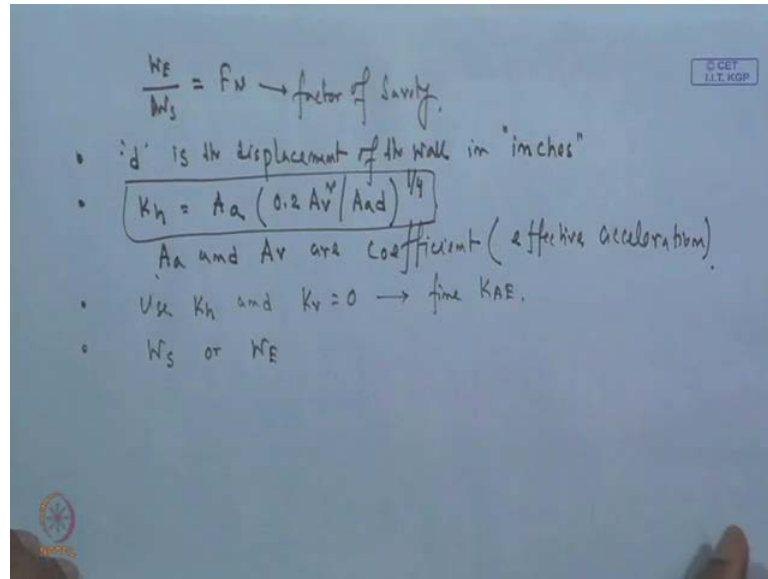 WE / WS = FN → factor of Savity.
© CET
I.I.T. KGP
• 'd' is the displacement of the wall in "inches"
• Kh = Aa (0.2 Av² / Aad)^1/4
Aa and Av are coefficient (effective acceleration).
• Use Kh and Kv = 0 → fine KAE.
• WS or WE
NPTEL